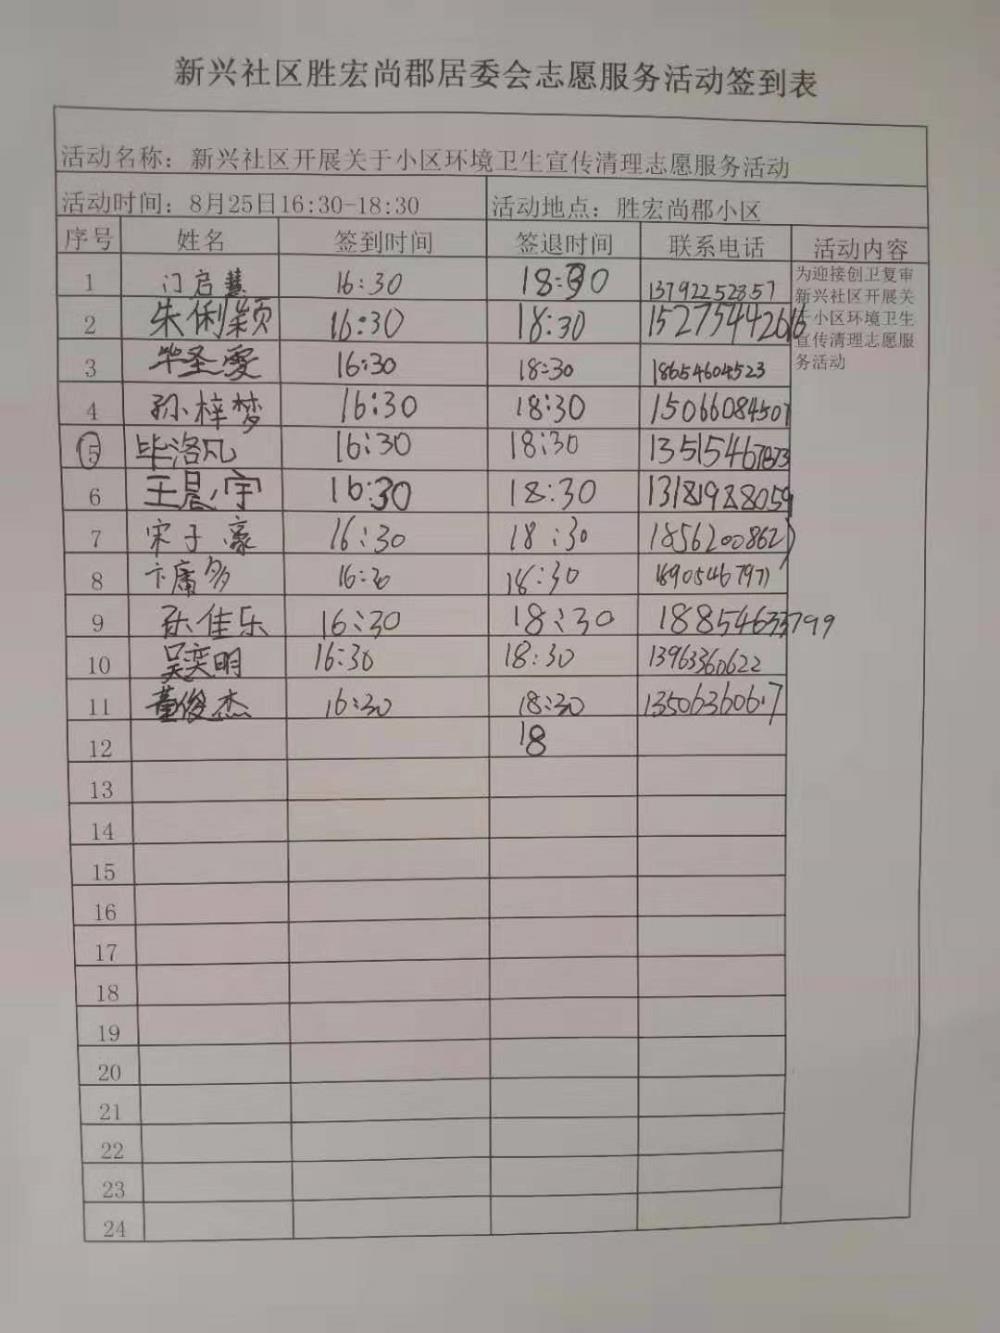 新兴社区胜宏尚郡居委会志愿服务活动签到表
活动名称：新兴社区开展关于小区环境卫生宣传清理志愿服务活动
活动时间：8月25日16:30-18:30 活动地点：胜宏尚郡小区
序号 姓名 签到时间 签退时间 联系电话 活动内容
1 门启慧 16:30 18:30 13792252357
为迎接创卫复审
新兴社区开展关
于小区环境卫生
宣传清理志愿服
务活动
2 朱俐颖 16:30 18:30
3 毕圣雯 16:30 18:30 18654604523
4 孙梓梦 16:30 18:30 15066084507
5 毕洛凡 16:30 18:30 13515467873
6 王晨宇 16:30 18:30 13181988059
7 宋子豪 16:30 18:30 18562008627
8 卞庸多 16:30 18:30 18905467971
9 孙佳乐 16:30 18:30 18854633799
10 吴奕明 16:30 18:30 13963360622
11 董俊杰 16:30 18:30 13506360617
12 18
13
14
15
16
17
18
19
20
21
22
23
24